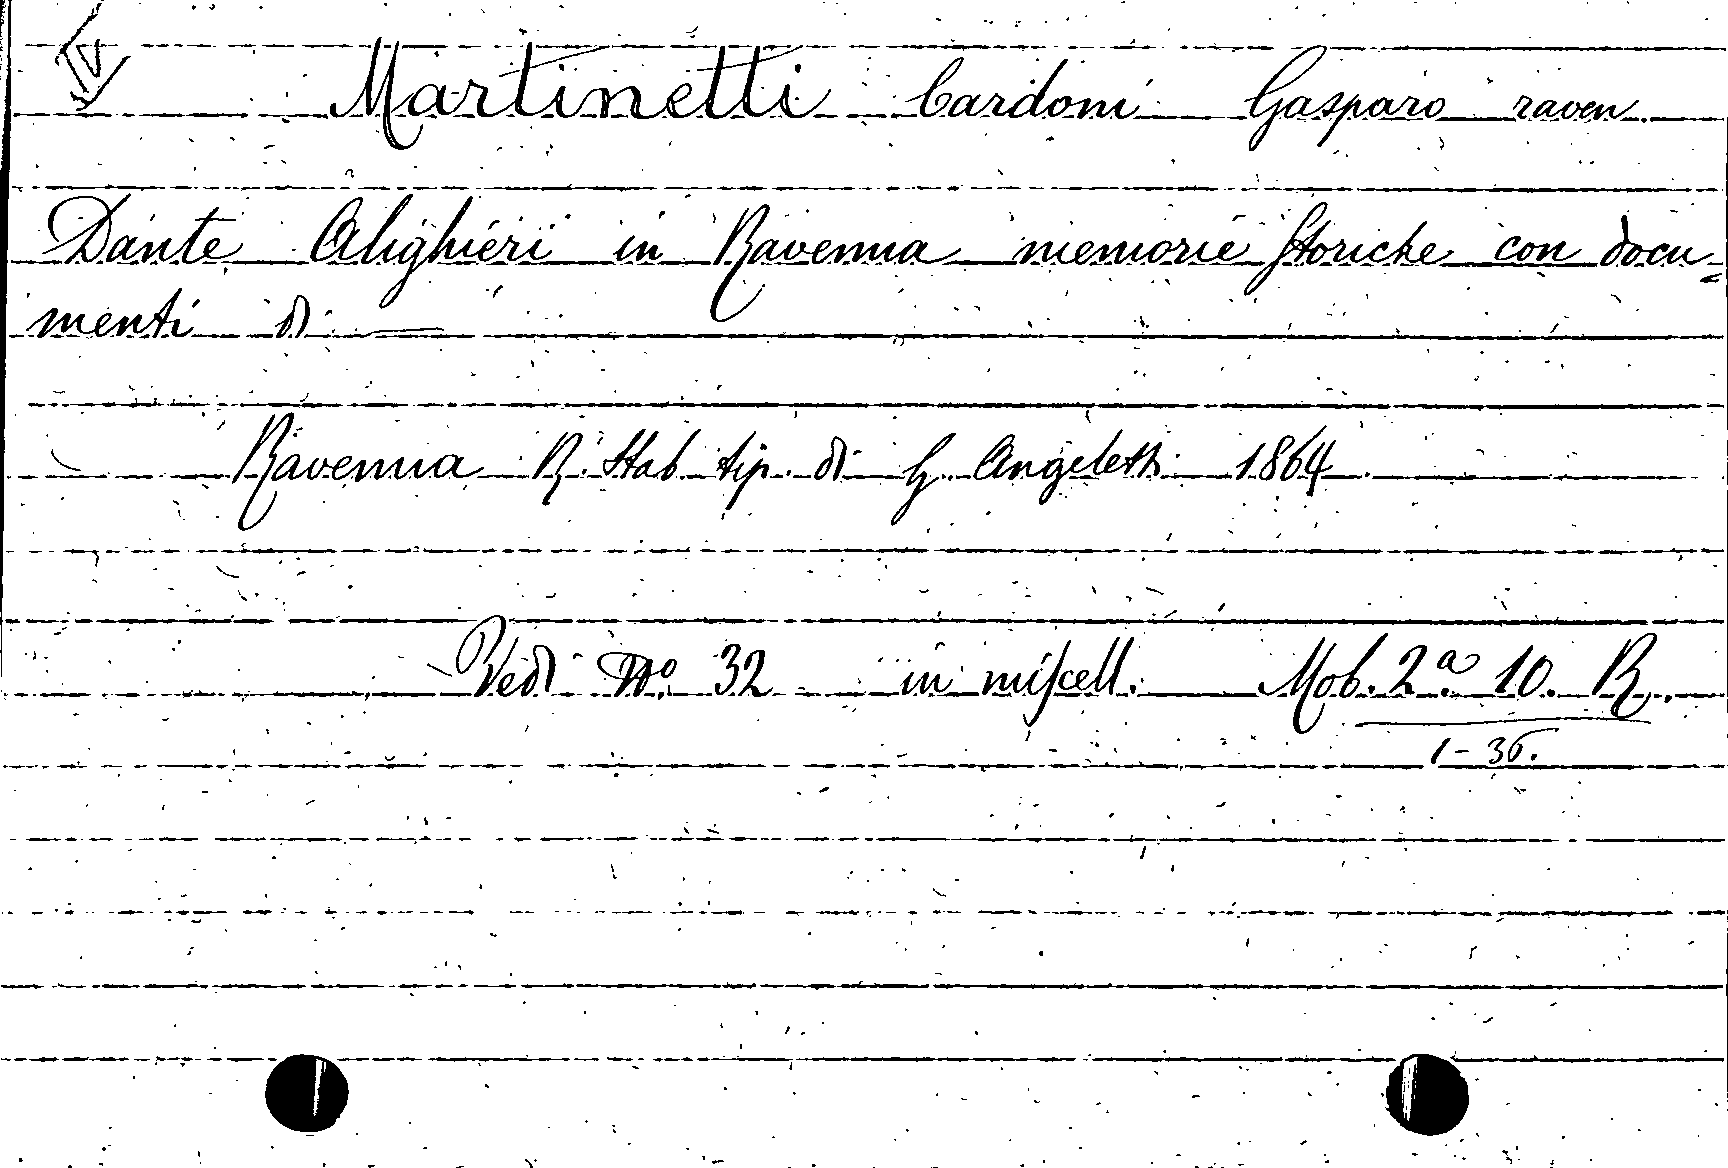 Martinetti Cardoni Gasparo raven.
Dante Alighieri in Ravenna memorie storiche con docu=
menti di —
Ravenna R. Stab. tip. di G. Angeletti 1864.
Vedi No. 32 in miscell. Mob. 2a. 10. R.
1-36.